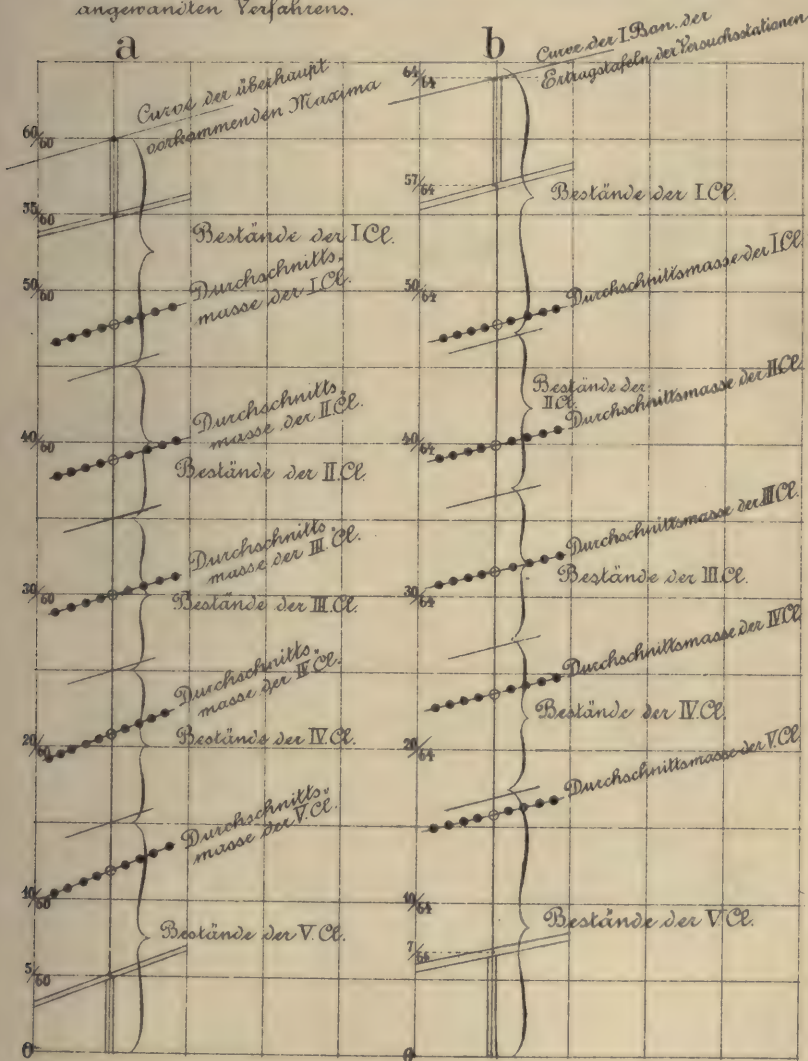 angewandten Verfahrens.
a
Curve der überhaupt
vorkommenden Maxima
60/60
55/60
Bestände der I.Cl.
50/60
Durchschnitts-
masse der I.Cl.
40/60
Durchschnitts-
masse der II.Cl.
Bestände der II.Cl.
Durchschnitts-
masse der III.Cl.
30/60
Bestände der III.Cl.
Durchschnitts-
masse der IV.Cl.
20/60
Bestände der IV.Cl.
Durchschnitts-
masse der V.Cl.
10/60
Bestände der V.Cl.
5/60
0
b
Curve der I.Bon. der
Ertragstafeln der Versuchsstationen
64/64
57/64
Bestände der I.Cl.
50/64
Durchschnittsmasse der I.Cl.
Bestände der
II.Cl.
Durchschnittsmasse der II.Cl.
40/64
Durchschnittsmasse der III.Cl.
30/64
Bestände der III.Cl.
Durchschnittsmasse der IV.Cl.
Bestände der IV.Cl.
20/64
Durchschnittsmasse der V.Cl.
10/64
Bestände der V.Cl.
0